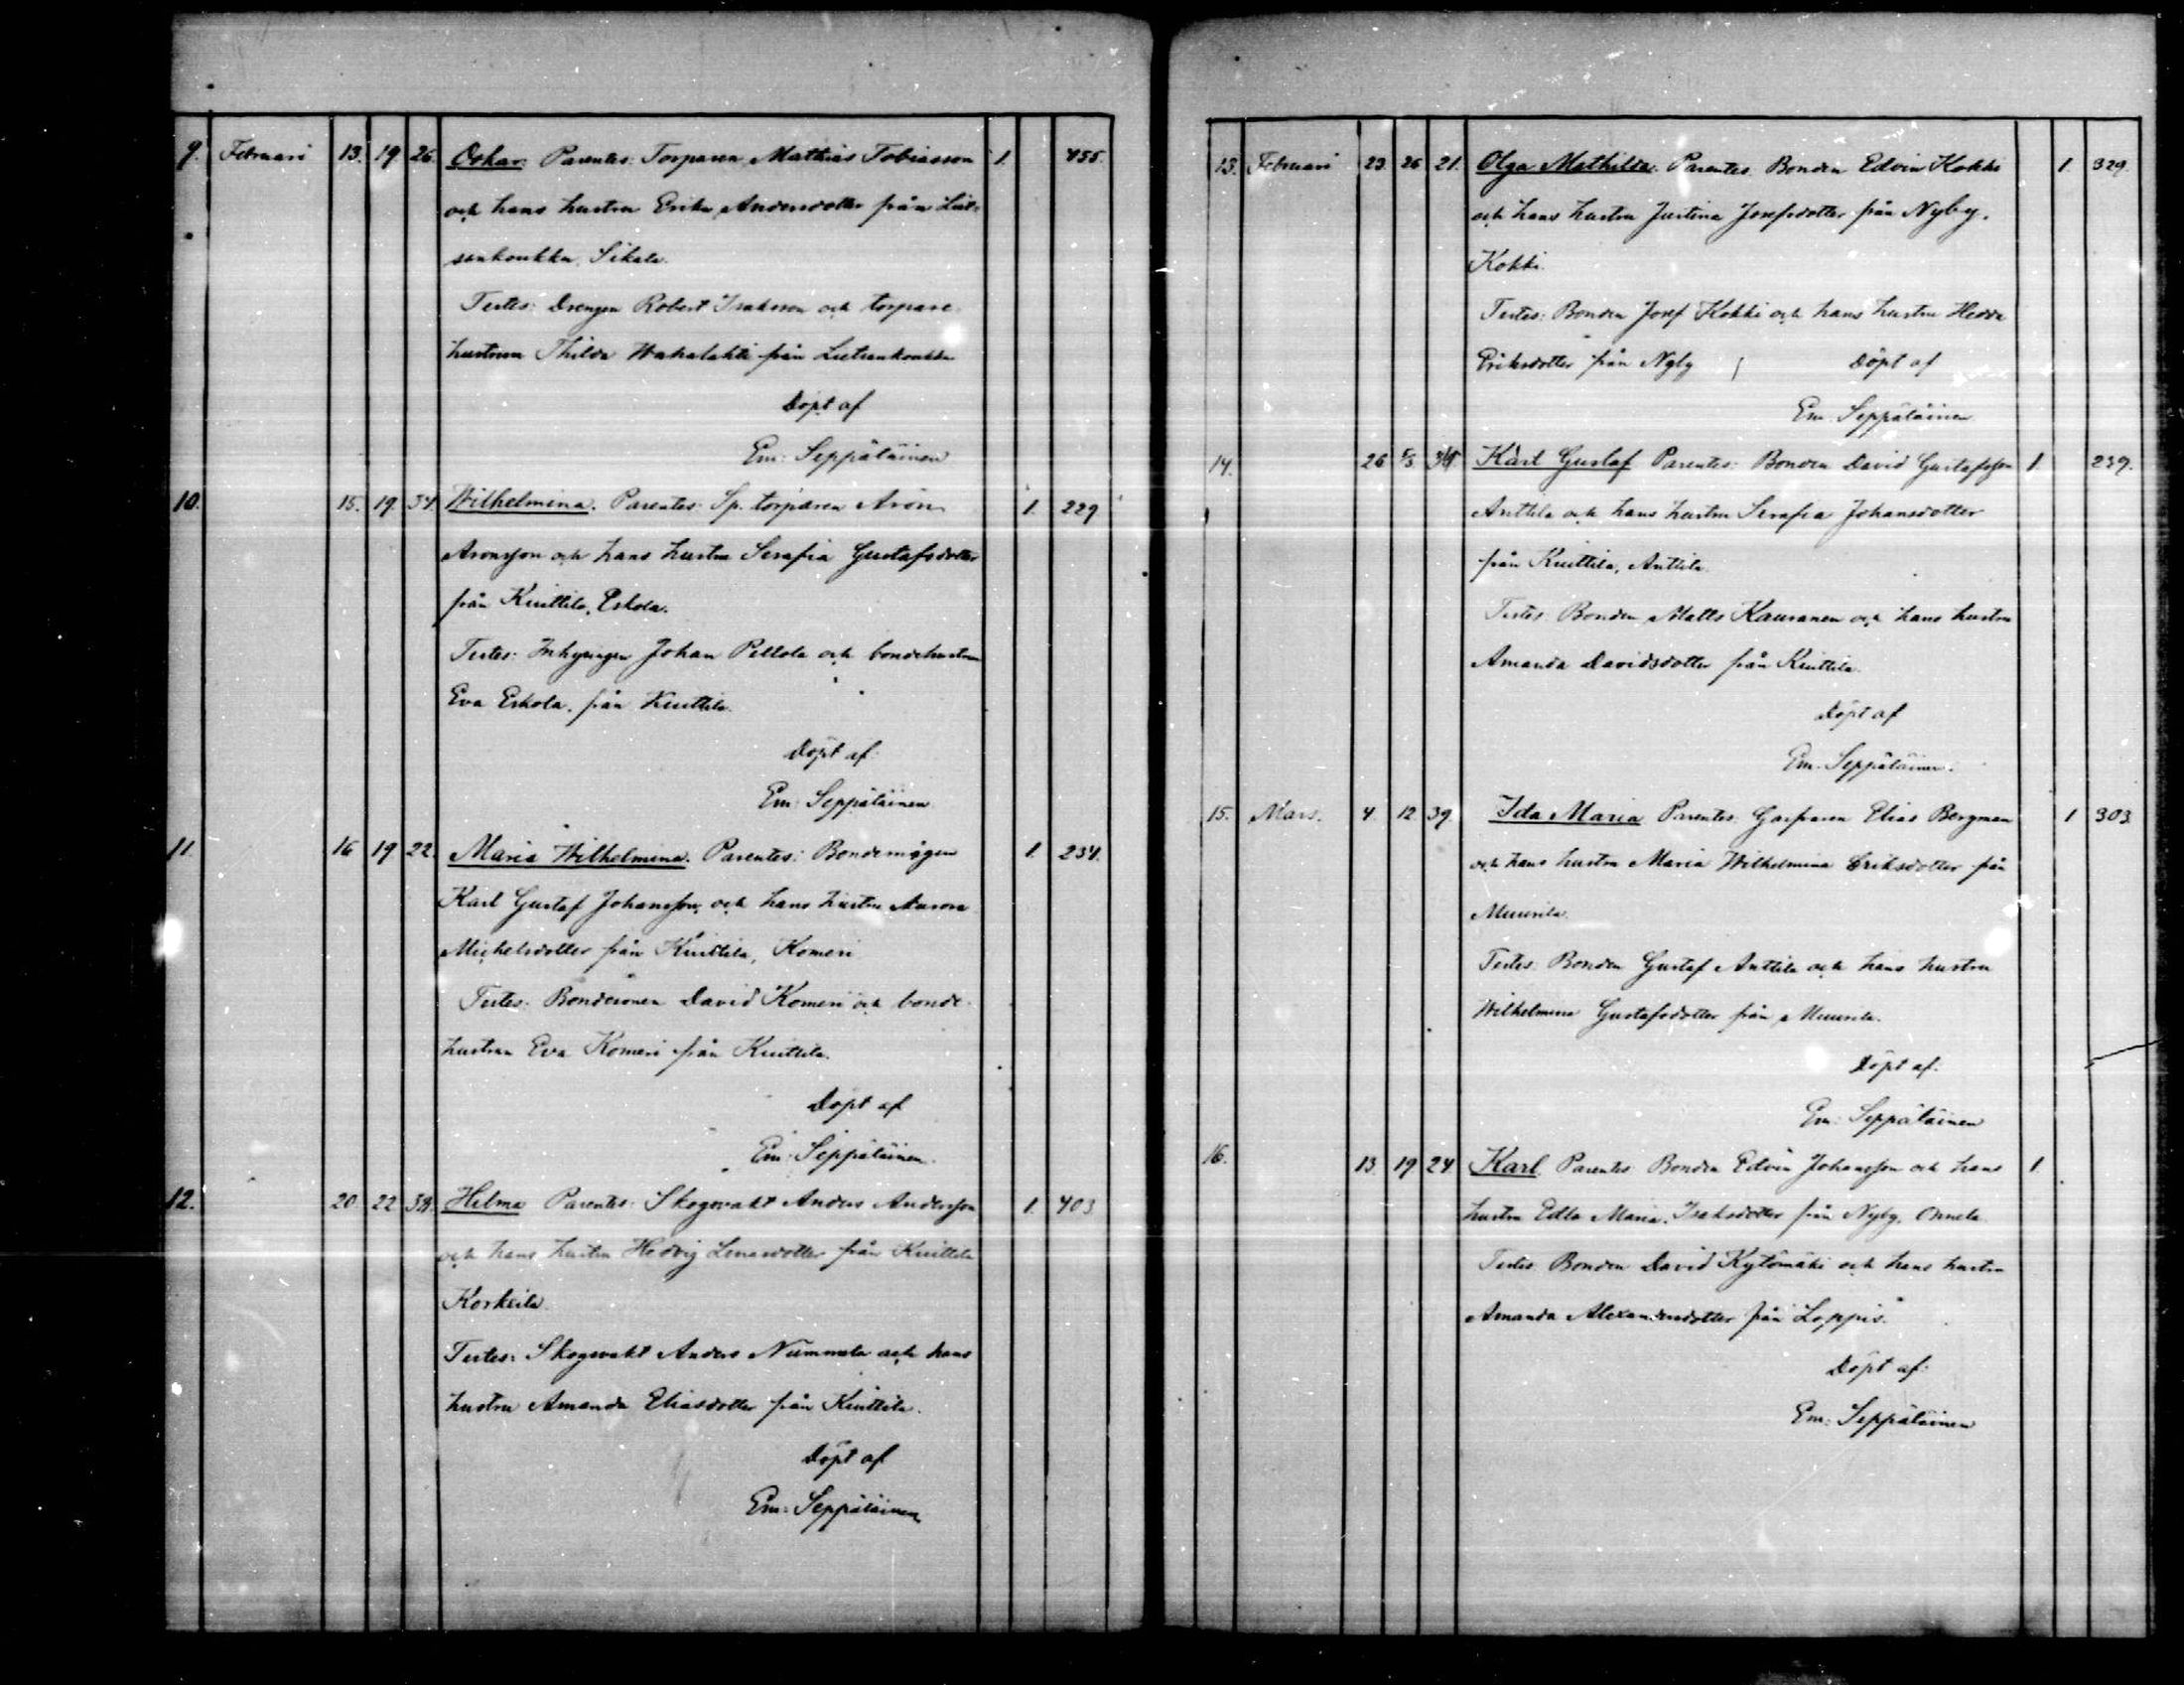 9. Februari 13. 19 26. Oskar. Parentes: Torparen Mathias Tobiasson 1. 455.
och hans hustru Erika Andersdotter från Liet-
sankoukku, Sikala.
Testes: Drengen Robert Isaksson och torpare-
hustrun Thilda Wahalahti från Lietsankoukku
Döpt af
Em: Seppäläinen
10. 15. 19. 34. Wilhelmina. Parentes: Sp. torparen Aron 1. 229
Aronsson och hans hustru Serafia Gustafsdotter
från Kuittila, Eskola.
Testes: Inhysingen Johan Pellola och bondehustrun
Eva Eskola, från Kuittila.
Döpt af:
Em: Seppäläinen
11. 16 19 22. Maria Wilhelmina. Parentes: Bondemågen 1. 234.
Karl Gustaf Johansson, och hans hustru Aurora
Michelsdotter från Kuittila, Komeri
Testes: Bondesonen David Komeri och bonde-
hustrun Eva Komeri från Kuittila.
Döpt af
Em: Seppäläinen.
12. 20 22 Hilma Parentes: Skogsvakt Anders Andersson 1. 403
och hans hustru Hedvig från Kuittila
Korkeila.
Testes: Skogsvakt Anders Nummela och hans
hustru Amanda Eliasdotter från Kuittila.
Döpt af
Em: Seppäläinen
13. Februari 23. 26 21. Olga Mathilda. Parentes: Bonden Edvin Kokki 1. 329.
och hans hustru Justina Josefsdotter från Nyby,
Kokki.
Testes: Bonden Josef Kokki och hans hustru Hedda
Eriksdotter från Nyby Döpt af
Em: Seppäläinen
14. 26 5/3 Karl Gustaf Parentes: Bonden David Gustafsson 1. 239.
Anttila och hans hustru Serafia Johansdotter
från Kuittila, Anttila.
Testes: Bonden Matts Kauranen och hans hustru
Amanda Davidsdotter från Kuittila.
Döpt af
Em: Seppäläinen.
15. Mars. 4. 12 39. Ida Maria Parentes: Elias Bergman 1 303
och hans hustru Maria Wilhelmina Eriksdotter från
Muurila.
Testes: Bonden Gustaf Anttila och hans hustru
Wilhelmina Gustafsdotter från Muurila.
Döpt af:
Em: Seppäläinen
16. 13 19 24 Karl. Parentes: Bonden Edvin Johansson och hans 1
hustru Edla Maria Isaksdotter från Nyby, Onnela
Testes: Bonden David Kytömäki och hans hustru
Amanda Alexandersdotter från Loppis.
Döpt af:
Em: Seppäläinen